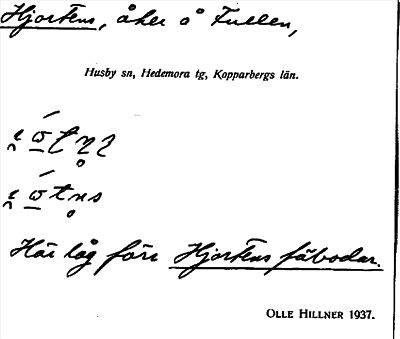 Hjortens, åker å Fullen,
Husby sn, Hedemora tg, Kopparbergs län.
Här låg förr Hjortens fäbodar.
OLLE HILLNER 1937.